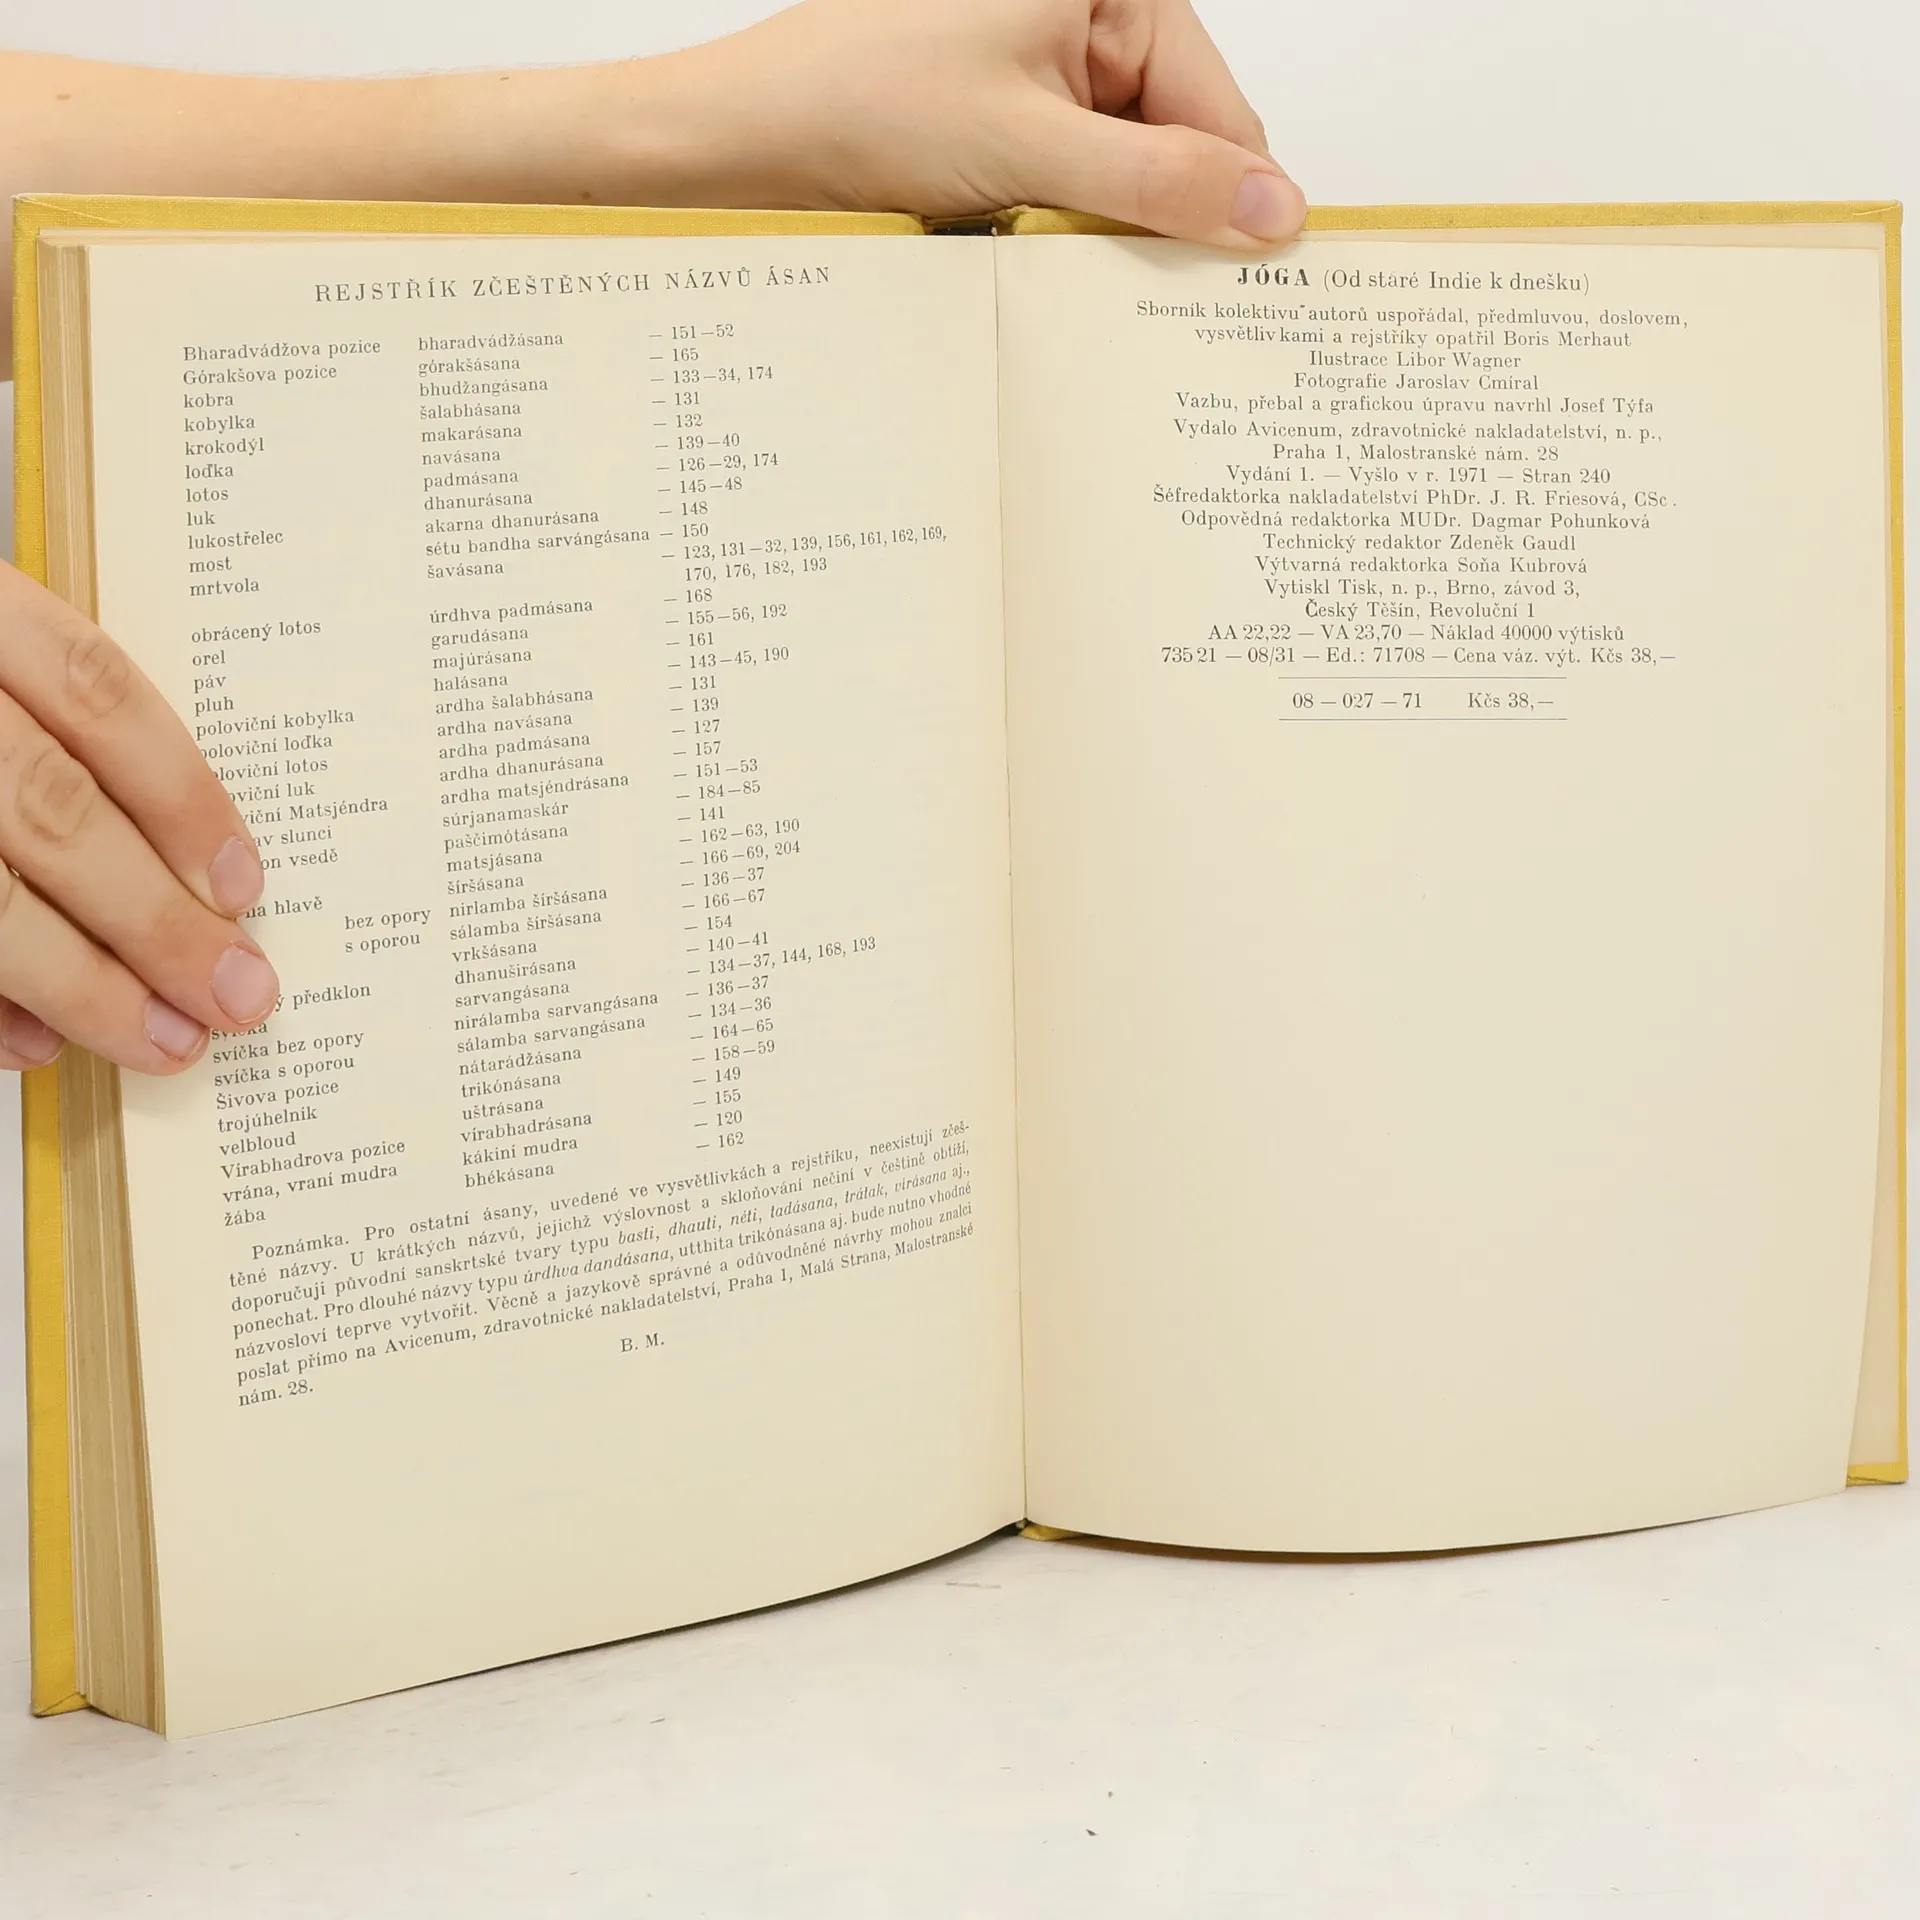 REJSTŘÍK ZČEŠTĚNÝCH NÁZVŮ ÁSAN
Bharadvádžova pozice bharadvádžásana — 151—52
Górakšova pozice górakšásana — 165
kobra bhudžangásana — 133—34, 174
kobylka šalabhásana — 131
krokodýl makarásana — 132
loďka navásana — 139—40
lotos padmásana — 126—29, 174
luk dhanurásana — 145—48
lukostřelec akarna dhanurásana — 148
most sétu bandha sarvángásana — 150
mrtvola šavásana — 123, 131—32, 139, 156, 161, 162, 169,
170, 176, 182, 193
obrácený lotos úrdhva padmásana — 168
orel garudásana — 155—56, 192
páv majúrásana — 161
pluh halásana — 143—45, 190
poloviční kobylka ardha šalabhásana — 131
poloviční loďka ardha navásana — 139
lotos ardha padmásana — 127
luk ardha dhanurásana — 157
Matsjéndra ardha matsjéndrásana — 151—53
slunci súrjanamaskár — 184—85
vsedě paščimótásana — 141
matsjásana — 162—63, 190
na hlavě šíršásana — 166—69, 204
bez opory nirlamba šíršásana — 136—37
s oporou sálamba šíršásana — 166—67
vrkšásana — 154
předklon dhanuširásana — 140—41
svíčka sarvangásana — 134—37, 144, 168, 193
svíčka bez opory nirálamba sarvangásana — 136—37
svíčka s oporou sálamba sarvangásana — 134—36
Šivova pozice nátarádžásana — 164—65
trojúhelník trikónásana — 158—59
velbloud uštrásana — 149
Vírabhadrova pozice vírabhadrásana — 155
vrána, vraní mudra kákiní mudra — 120
žába bhékásana — 162
Poznámka. Pro ostatní ásany, uvedené ve vysvětlivkách a rejstříku, neexistují zčeš-
těné názvy. U krátkých názvů, jejichž výslovnost a skloňování nečiní v češtině obtíží,
doporučuji původní sanskrtské tvary typu basti, dhauti, néti, tadásana, trátak, virásana aj.,
ponechat. Pro dlouhé názvy typu úrdhva dandásana, utthita trikónásana aj. bude nutno vhodné
názvosloví teprve vytvořit. Věcně a jazykově správné a odůvodněné návrhy mohou znalci
poslat přímo na Avicenum, zdravotnické nakladatelství, Praha 1, Malá Strana, Malostranské
nám. 28.
B. M.
JÓGA (Od staré Indie k dnešku)
Sborník kolektivu autorů uspořádal, předmluvou, doslovem,
vysvětlivkami a rejstříky opatřil Boris Merhaut
Ilustrace Libor Wagner
Fotografie Jaroslav Cmíral
Vazbu, přebal a grafickou úpravu navrhl Josef Týfa
Vydalo Avicenum, zdravotnické nakladatelství, n. p.,
Praha 1, Malostranské nám. 28
Vydání 1. — Vyšlo v r. 1971 — Stran 240
Šéfredaktorka nakladatelství PhDr. J. R. Friesová, CSc.
Odpovědná redaktorka MUDr. Dagmar Pohunková
Technický redaktor Zdeněk Gaudl
Výtvarná redaktorka Soňa Kubrová
Vytiskl Tisk, n. p., Brno, závod 3,
Český Těšín, Revoluční 1
AA 22,22 — VA 23,70 — Náklad 40000 výtisků
735 21 — 08/31 — Ed.: 71708 — Cena váz. výt. Kčs 38,—
08 — 027 — 71 Kčs 38,—